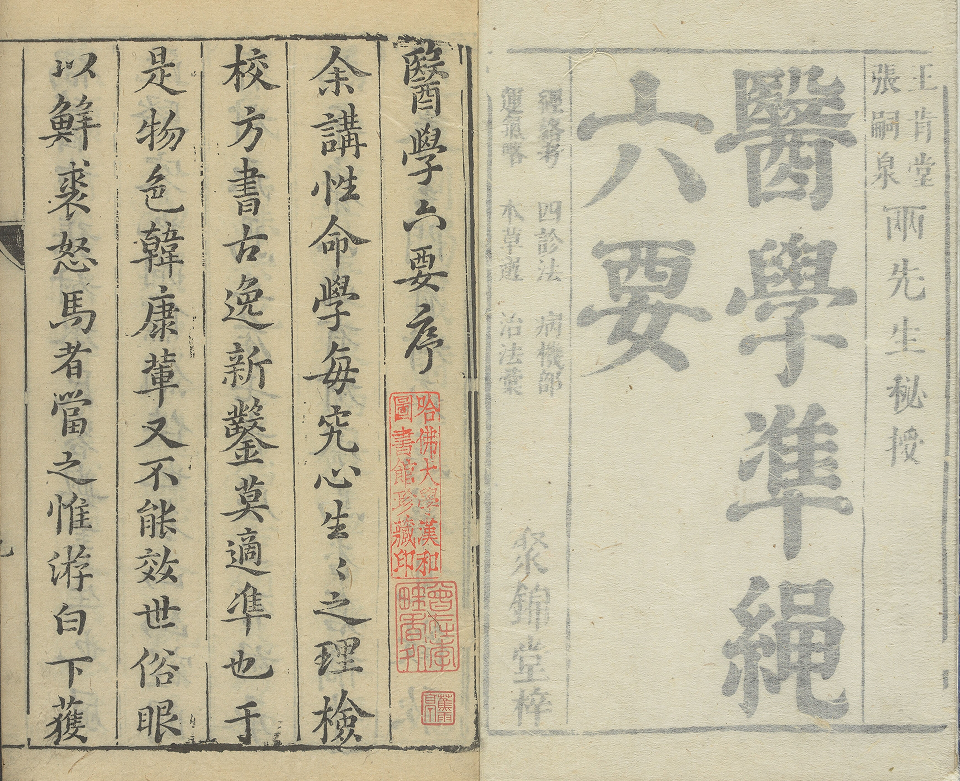 王肯堂
張嗣泉
兩先生秘授
醫學準繩
六要
經絡考 四診法 病機部
運氣略 本草選 治法彙
聚錦堂梓
醫學六要序
余講性命學每究心生〻之理檢
校方書古逸新鑿莫適準也于
是物色韓康輩又不能效世俗眼
以鮮裘怒馬者當之惟游白下獲
哈佛大學漢和
圖書館珍藏印